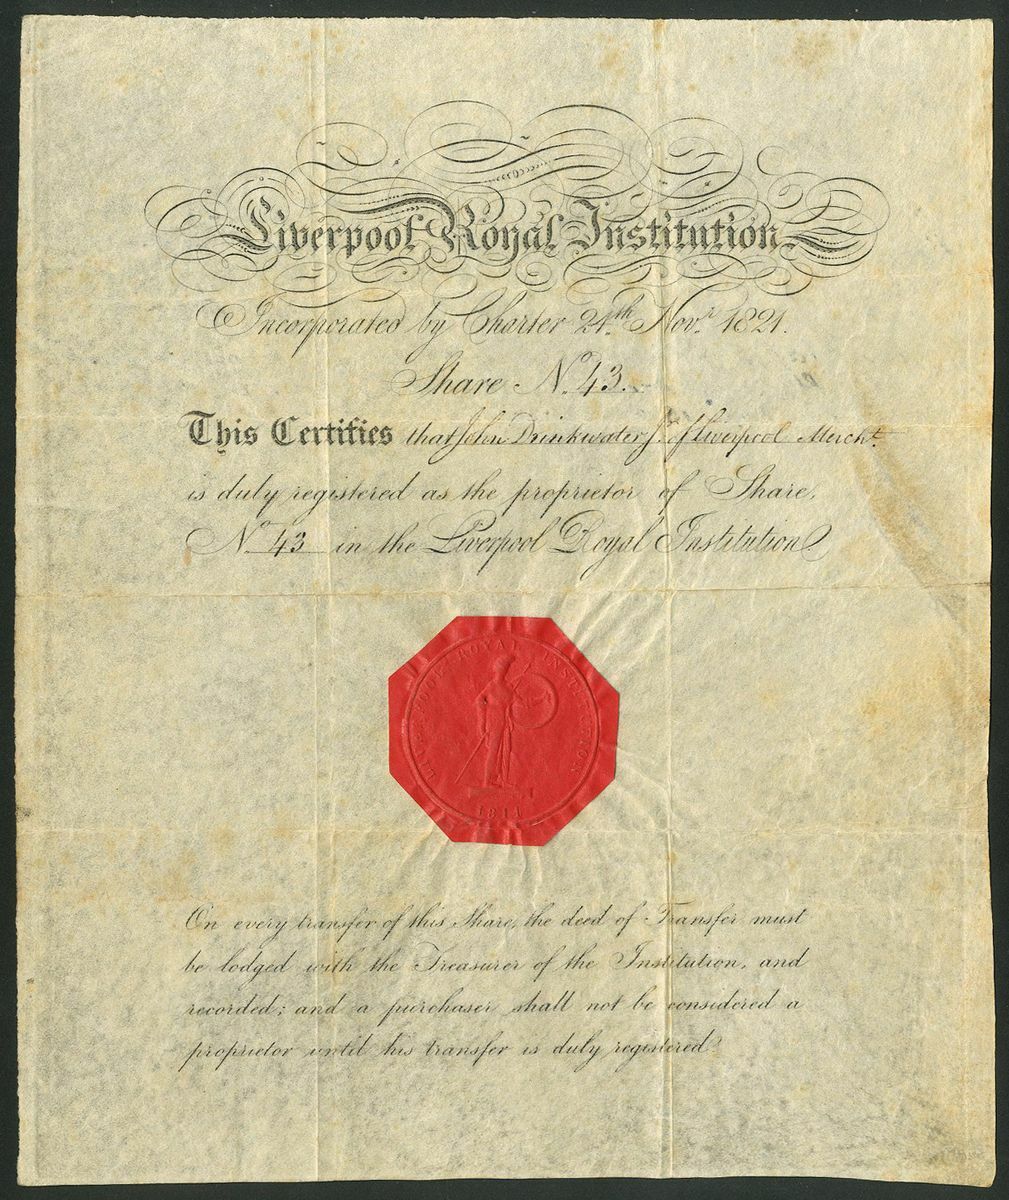 Liverpool Royal Institution
Incorporated by Charter 24th. Novr. 1821.
Share No. 43.
This Certifies that John Drinkwater Jr. of Liverpool Mercht.
is duly registered as the proprietor of Share,
No. 43 in the Liverpool Royal Institution.
LIVERPOOL ROYAL INSTITUTION
1814
On every transfer of this Share, the deed of Transfer must
be lodged with the Treasurer of the Institution, and
recorded; and a purchaser shall not be considered a
proprietor until his transfer is duly registered.